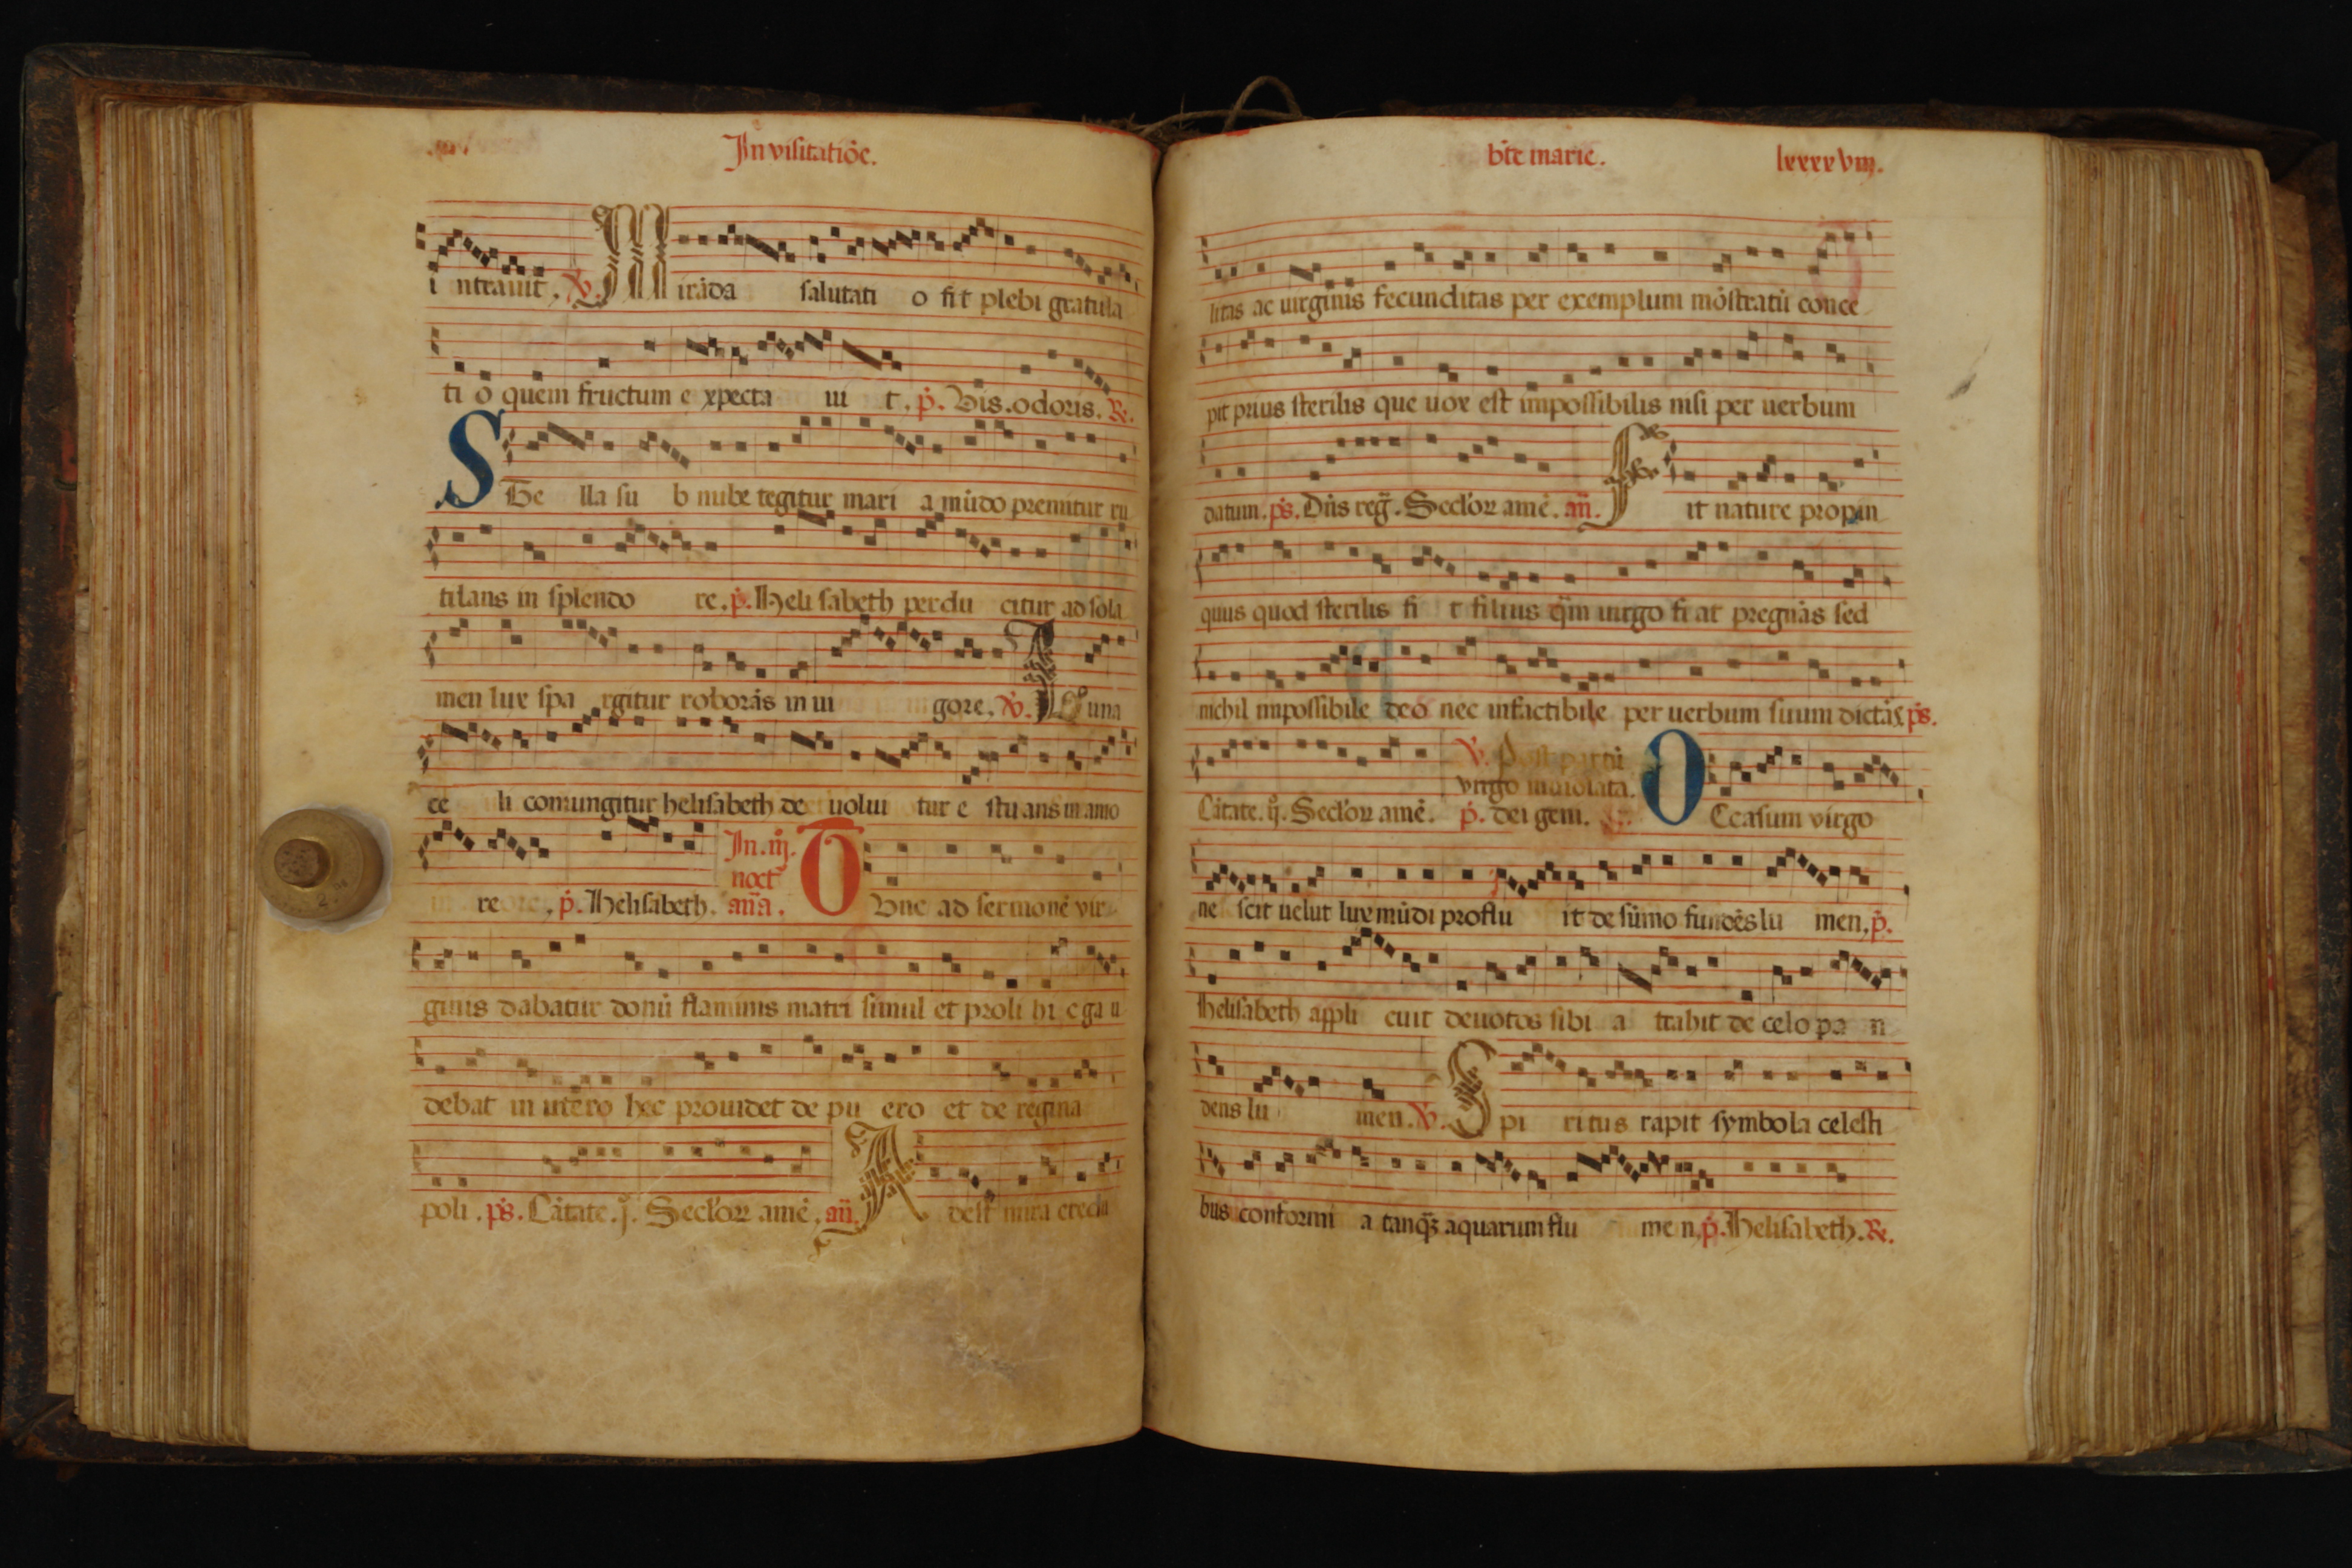 In visitatiōe.
i ntrauit. ℣. Mirāda salutati o fit plebi gratula
ti o quem fructum e xpecta ui t. p̄. Vis. odoris. ℟.
STe lla su b nube tegitur mari a mūdo premitur ru
tilans in splendo re. p̄. Heli sabeth perdu citur ad sola
men lux spa rgitur roborās in ui gore. ℣. I Luna
ce li coniungitur helisabeth de uolui tur e stu ans in amo
In. iij.
noct
re. p̄. Helisabeth. an̄a. TVnc ad sermonē vir
ginis dabatur donū flaminis matri simul et proli hi c ga u
debat in utero hec prouidet de pu ero et de regina
poli. ps̄. Cātate. j. Secloꝝ amē. an̄. Adest mira credu
bt̄e marie. lxxxxviij.
litas ac uirginis fecunditas per exemplum mōstratū conce
pit prius sterilis que uox est impossibilis nisi per uerbum
datum. ps̄. Dn̄s reḡ. Secloꝝ amē. an̄. Fit nature propin
quus quod sterilis fi t filius q̄m uirgo fi at pregnās sed
nichil impossibile deo nec infactibile per uerbum suum dictās ps̄.
℣. Post partū
virgo inuiolata.
Cātate. ij. Secloꝝ amē. p̄. dei geni. OCcasum virgo
ne scit uelut lux mūdi proflu it de sūmo fundēs lu men, p̄.
Helisabeth appli cuit deuotos sibi a ttahit de celo pa n
dens lu men. ℣. Spi ritus rapit symbola celesti
bus conformi a tanqꝫ aquarum flu me n, p̄. Helisabeth. ℟.